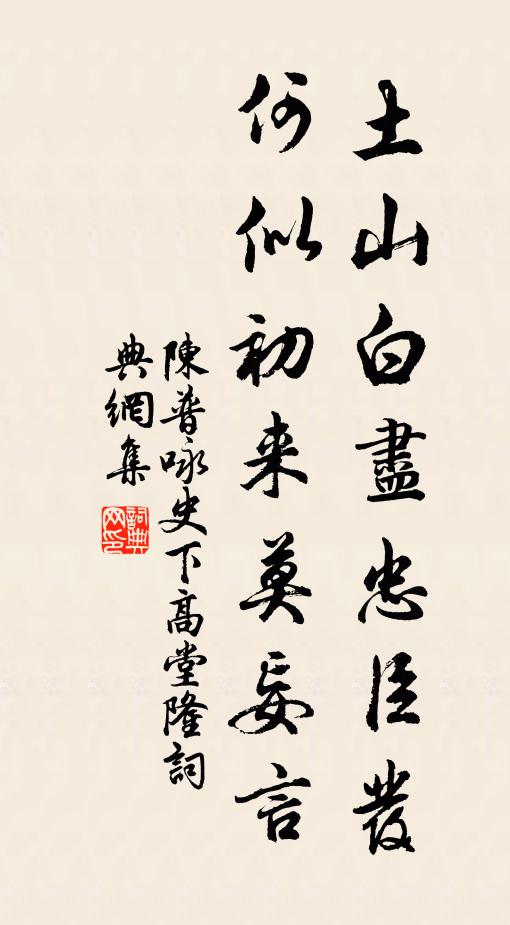 土山白盡忠臣髮
何似初来莫妄言
陳普咏史下高堂隆詞
典網集
詞典網印